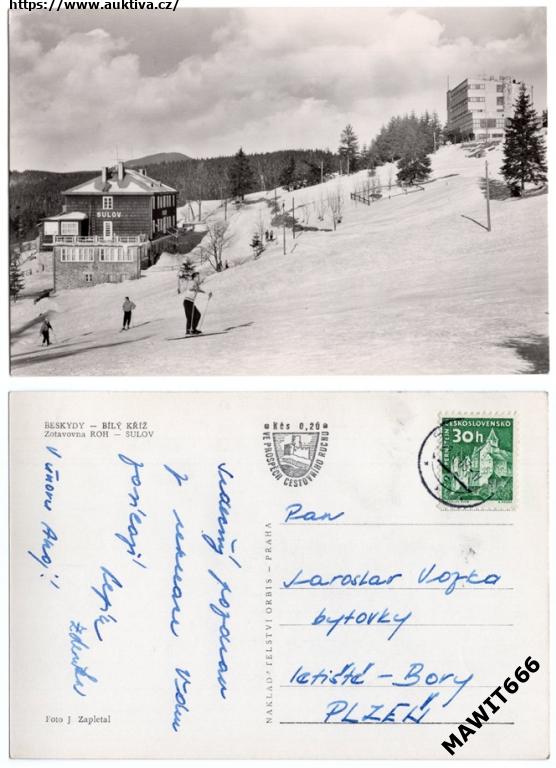 https://www.auktiva.cz/
SULOV
BESKYDY – BÍLÝ KŘÍŽ
Zotavovna ROH – SULOV
Kčs 0,20
VE PROSPĚCH CESTOVNÍHO RUCHU
ČESKOSLOVENSKO
30h
Srdečný pozdrav
z
Vám
posílají
Zdeněk
NAKLADATELSTVÍ ORBIS – PRAHA
Pan
Jaroslav Vozka
bytovky
letiště – Bory
PLZEŇ
Foto J. Zapletal
MAWIT666